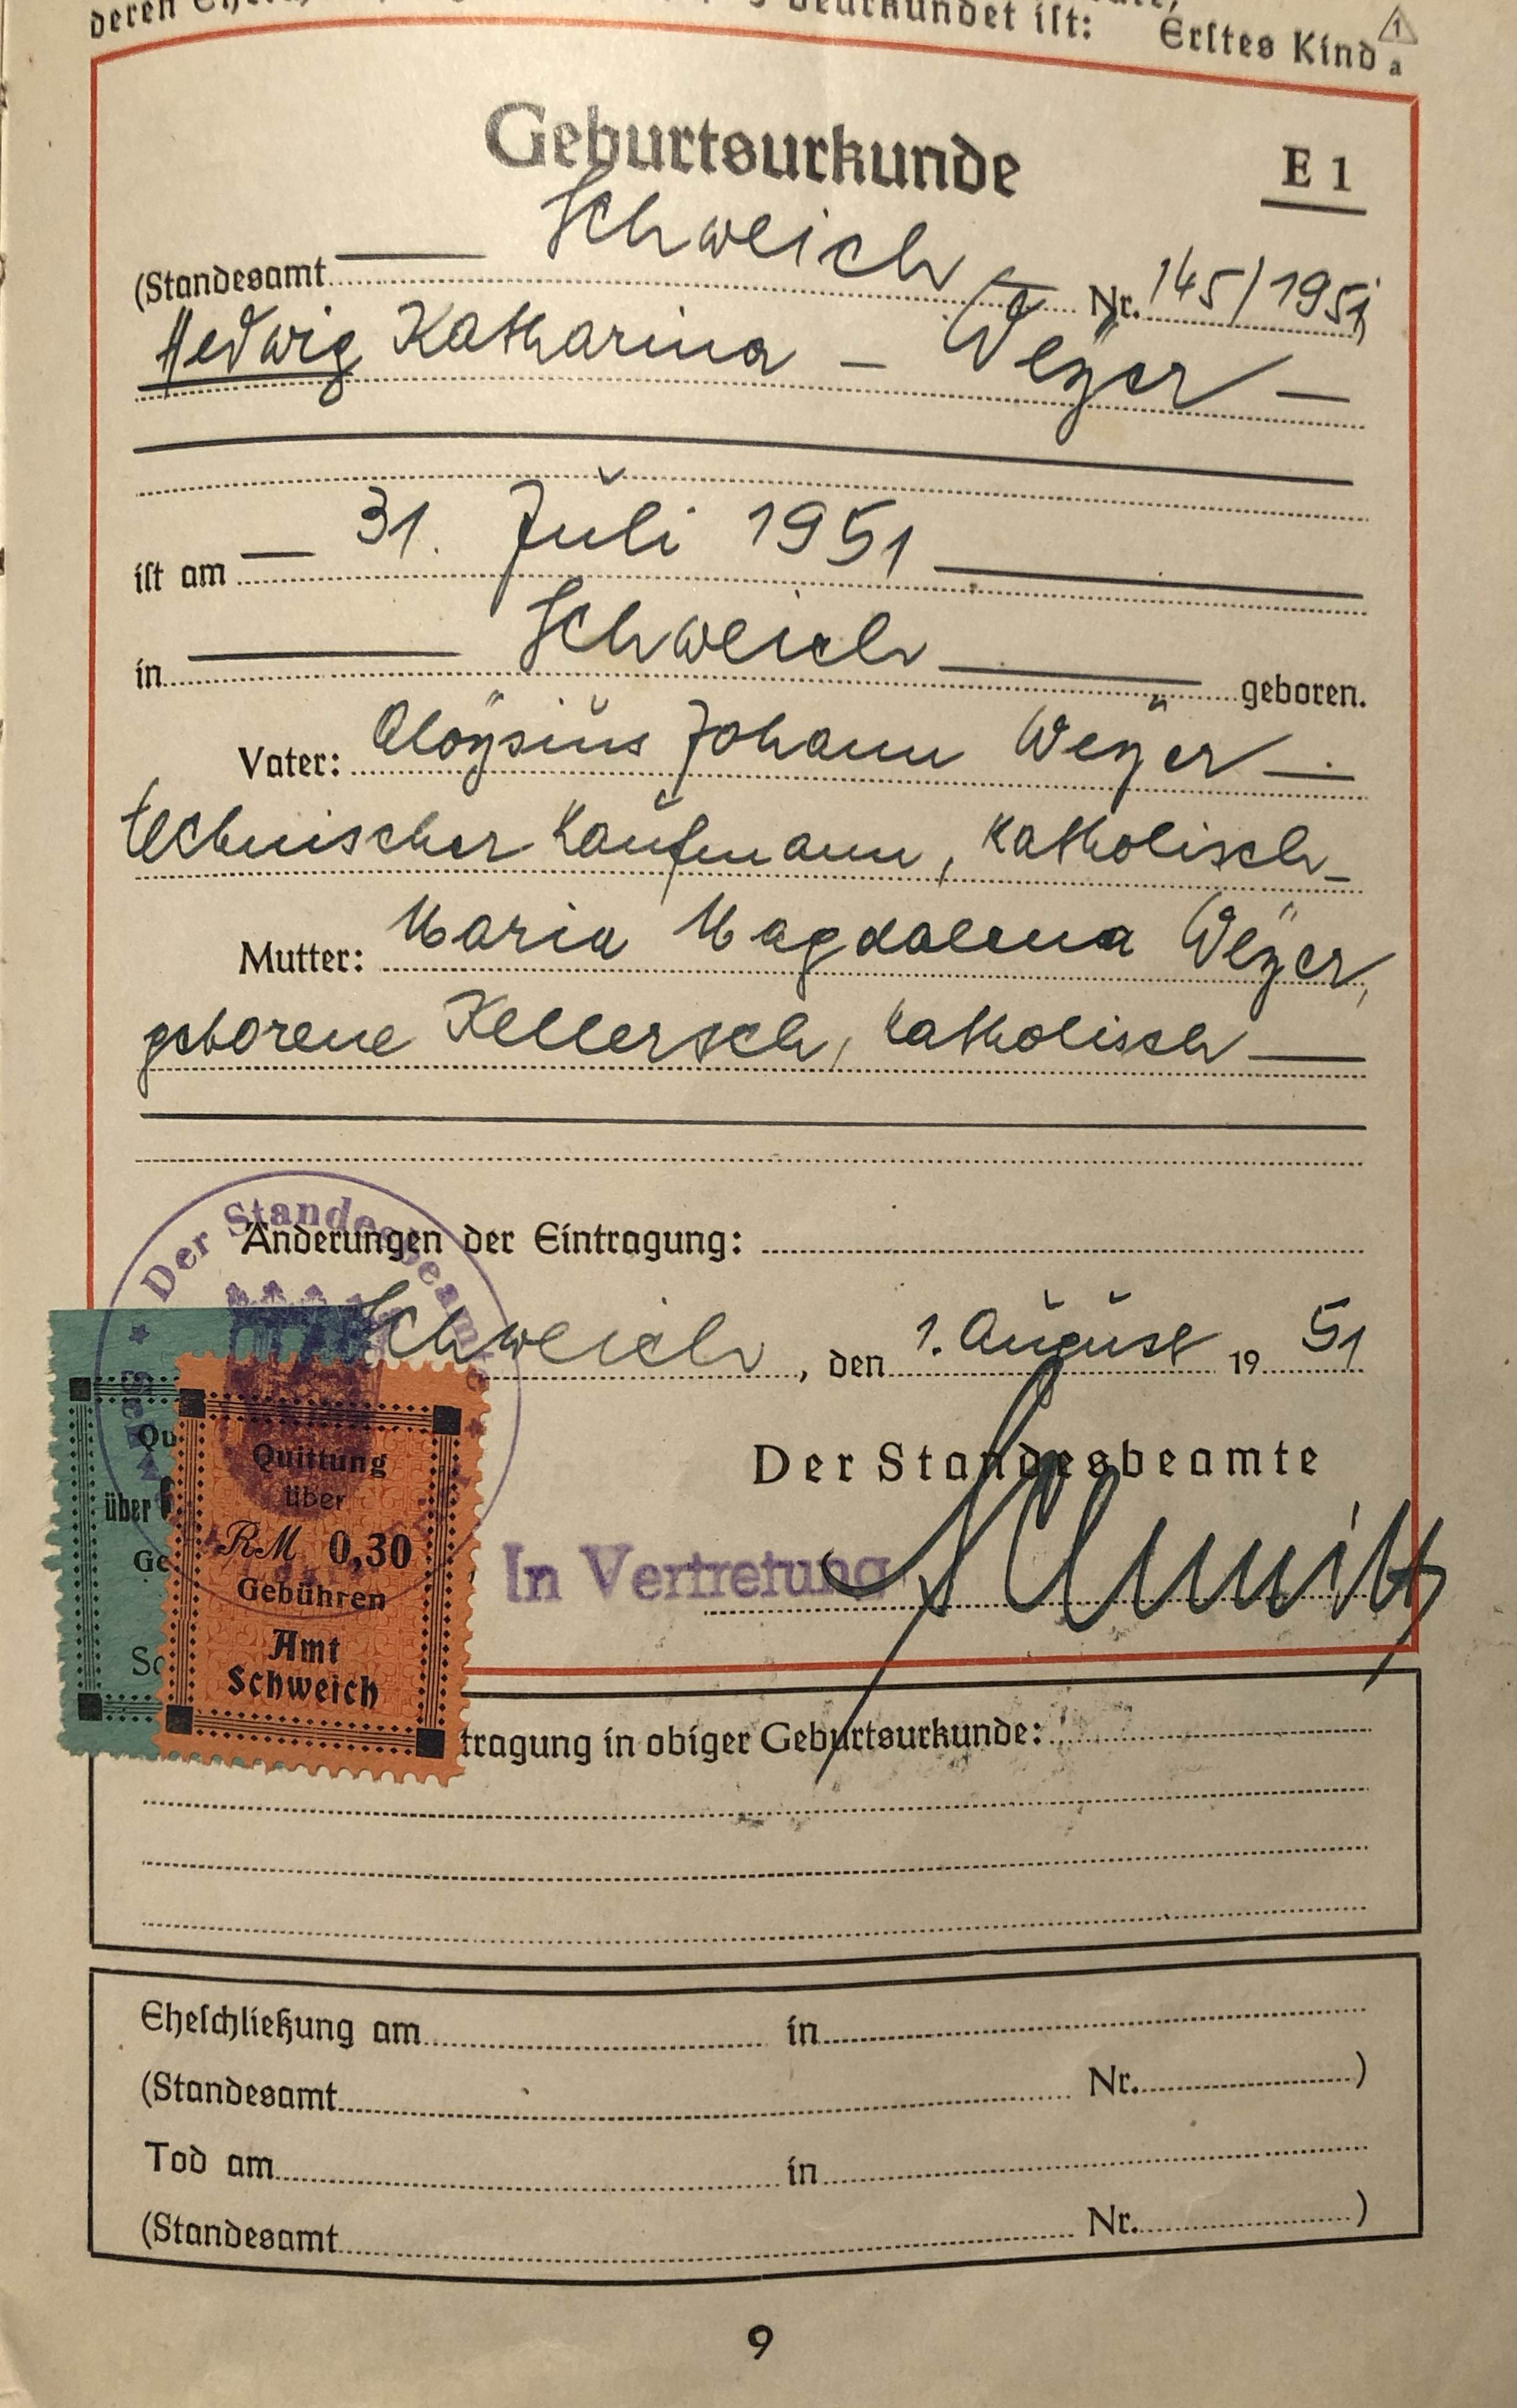 deren beurkundet iſt: Erſtes Kind 1 a
Geburtsurkunde E 1
(Standesamt Schweich Nr. 145/1951
Hedwig Katharina – Weÿer –
iſt am – 31. Juli 1951
in Schweich geboren.
Vater: Aloÿsius Johann Weÿer –
technischer Kaufmann, katholisch –
Mutter: Maria Magdalena Weÿer,
geborene Kellersch, katholisch –
Änderungen der Eintragung:
Schweich, den 1. August 1951
Der Standesbeamte
In Vertretung Schmitt
Der Standesbeamte
Qu
über
Ge
Sc
Quittung
über
RM 0,30
Gebühren
Amt
Schweich
tragung in obiger Geburtsurkunde:
Eheſchließung am in
(Standesamt Nr. )
Tod am in
(Standesamt Nr. )
9